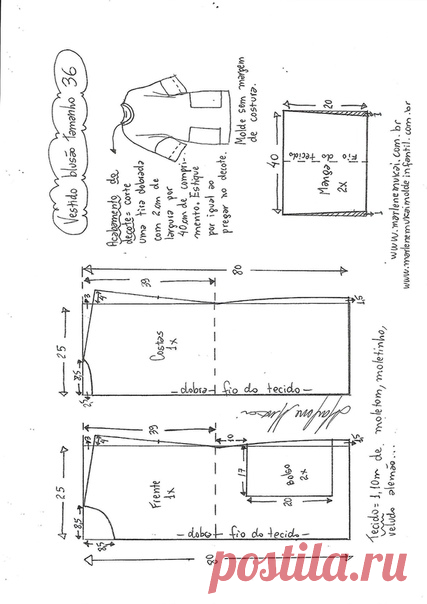 Vestido blusão tamanho 36
Acabamento do
decote = corte
uma tira dobrada
com 2cm de
largura por
40cm de compri-
mento. Estique
por igual ao
pregar no decote.
Molde sem margem
de costura.
20
40
Fio do tecido
Manga
2x
1
1
www.marlenemukai.com.br
www.marlenemukaimoldeinfantil.com.br
80
39
25
3
4
8,5
2
Costas
1x
dobra fio do tecido
1,5
39
10
25
3
4
8,5
8,5
Frente
1x
17
Bolso
2x
20
dobra fio do tecido
1,5
80
Tecido = 1,10m de moletom, moletinho,
veludo alemão...
postila.ru